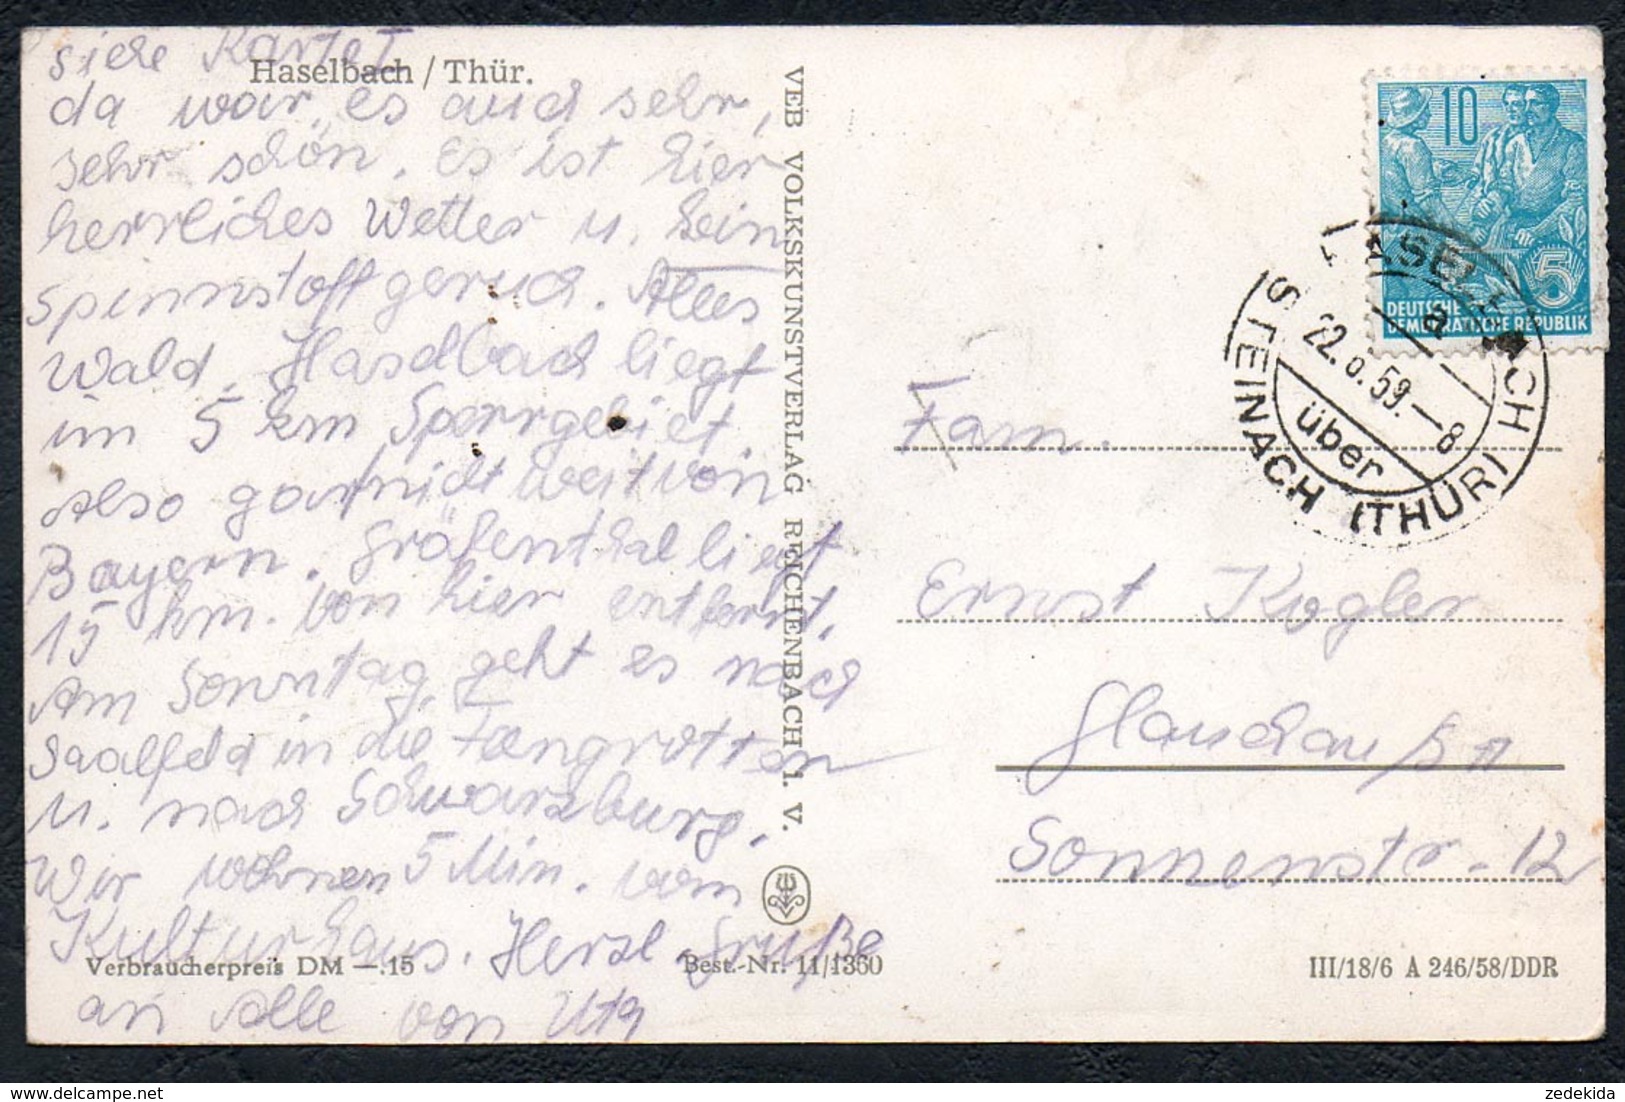 siehe Karte I
Haselbach / Thür.
da war es auch sehr,
sehr schön. Es ist hier
herrliches Wetter u. kein
Spinnstoffgeruch. Alles
Wald. Haselbach liegt
im 5 km Sperrgebiet.
Also garnicht weit von
Bayern. Gräfenthal liegt
15 km. von hier entfernt.
Am Sonntag geht es nach
Saalfeld in die Feengrotten
u. nach Schwarzburg.
Wir wohnen 5 Min. vom
Kulturhaus. Herzl. Grüße
an Alle von Uta
Verbraucherpreis DM —.15
Best.-Nr. 11/1360
VEB VOLKSKUNSTVERLAG REICHENBACH i. V.
10
5
DEUTSCHE
DEMOKRATISCHE REPUBLIK
HASELBACH
a
22. 59.—8
über
STEINACH (THÜR)
Fam.
Ernst Kogler
Glauchau
Sonnenstr. 12
III/18/6 A 246/58/DDR
zedekida